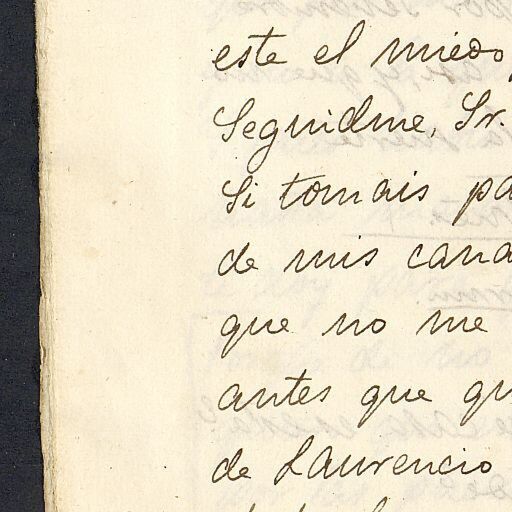 este el miedo,
Seguidme, Sr.
Si tomais pa
de mis cana
que no me
antes que qu
de Laurencio